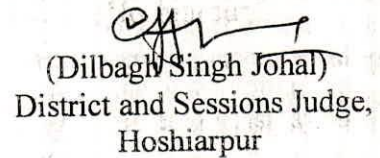 (Dilbagh Singh Johal)
District and Sessions Judge,
Hoshiarpur